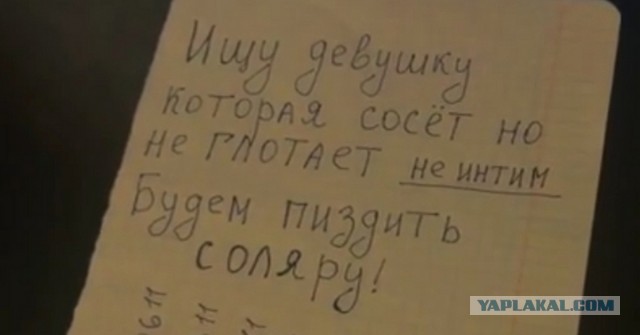 Ищу девушку
которая сосёт но
не глотает не интим
Будем пиздить
соляру!
11
11
YAPLAKAL.COM